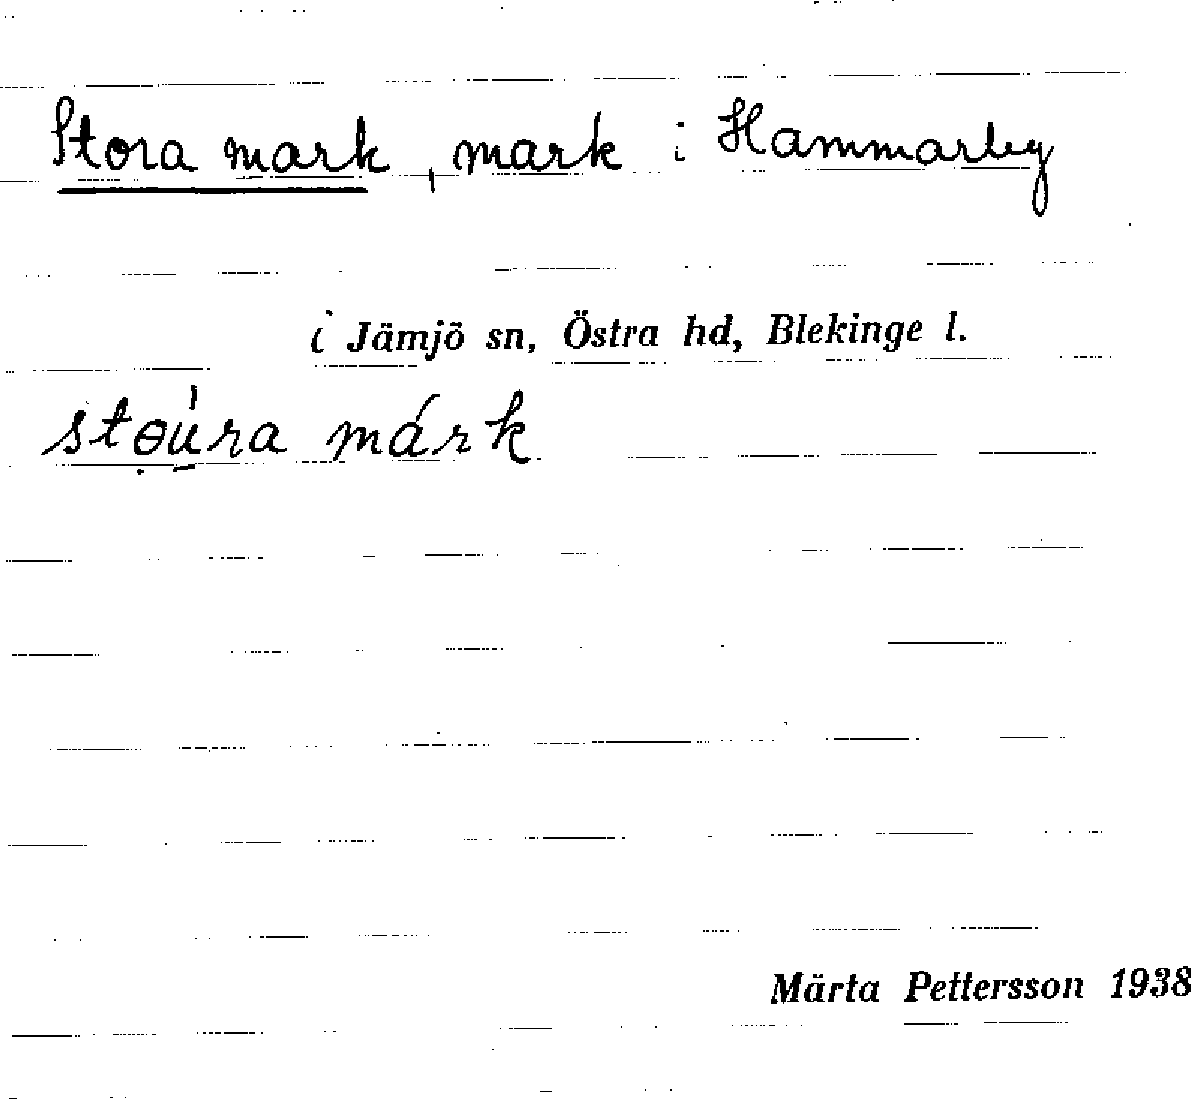 Stora mark, mark i Hammarby
i Jämjö sn, Östra hd, Blekinge l.
stɵú̠ra márk
Märta Pettersson 1938